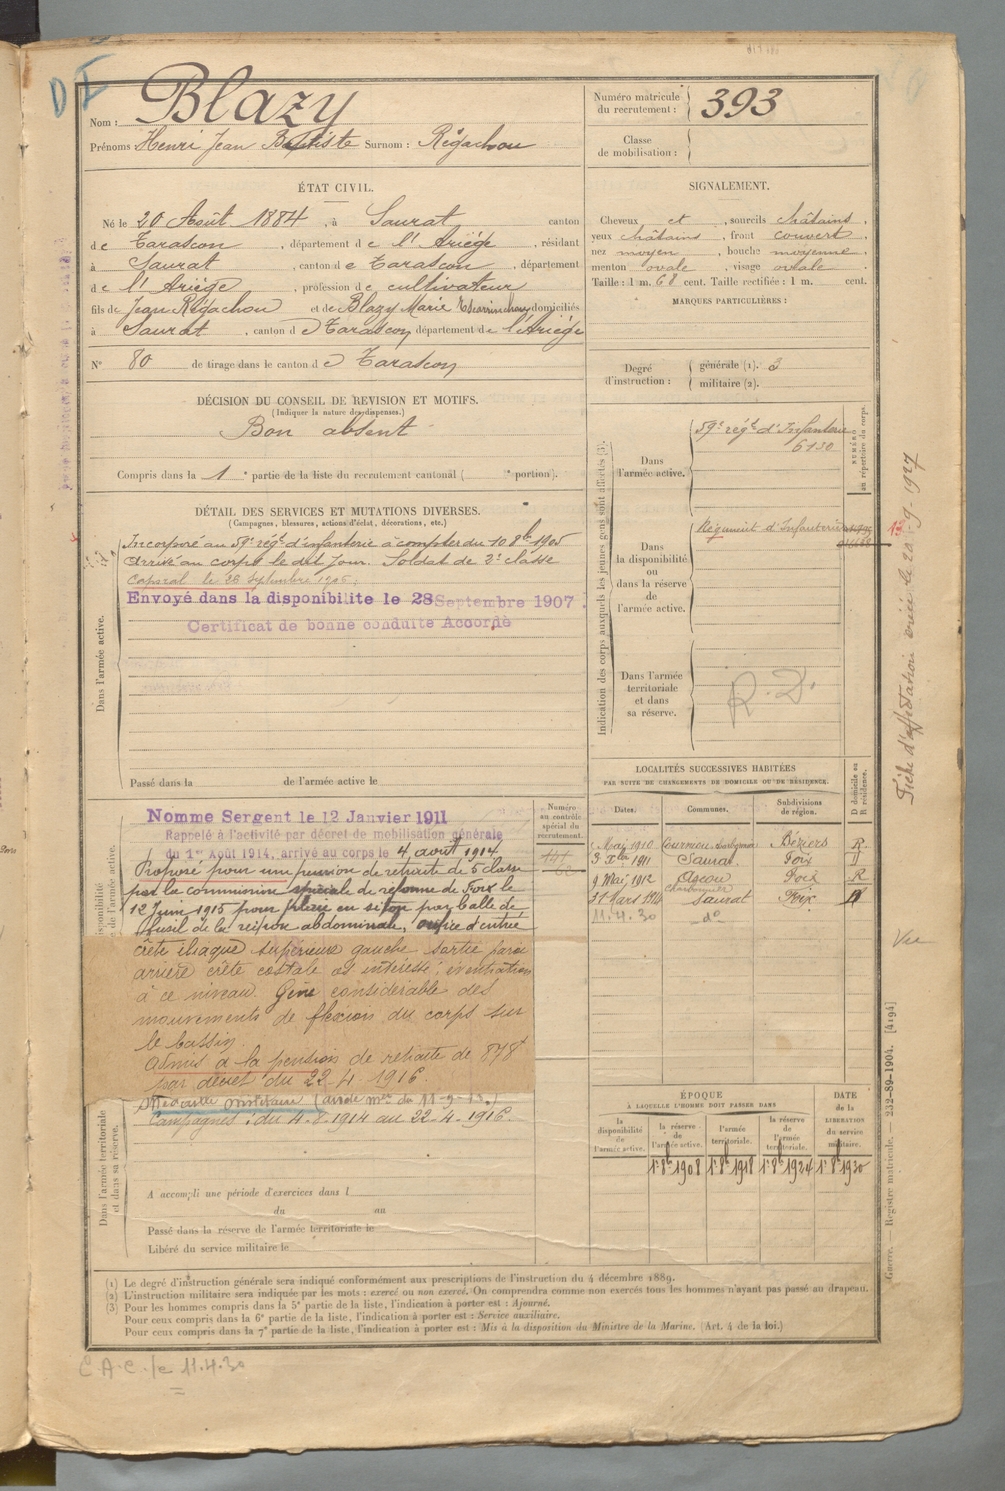 D I
Nom : Blazy
Prénoms Henri Jean Baptiste Surnom : Régachou
Numéro matricule du recrutement : 393
Classe de mobilisation :
ÉTAT CIVIL.
Né le 20 Août 1884, à Saurat canton
de Tarascon, département de l'Ariège, résidant
à Saurat, canton de Tarascon, département
de l'Ariège, profession de cultivateur
fils de Jean Régachou et de Blazy Marie domiciliés
à Saurat, canton de Tarascon département de l'Ariège
N° 80 de tirage dans le canton de Tarascon
SIGNALEMENT.
Cheveux et, sourcils châtains.
yeux châtains, front couvert
nez moyen, bouche moyenne
menton ovale, visage ovale
Taille : 1 m. 68 cent. Taille rectifiée : 1 m. cent.
MARQUES PARTICULIÈRES :
Degré d'instruction : générale (1). 3
militaire (2).
DÉCISION DU CONSEIL DE REVISION ET MOTIFS.
(Indiquer la nature des dispenses.)
Bon absent
Compris dans la 1e partie de la liste du recrutement cantonal ( e portion).
DÉTAIL DES SERVICES ET MUTATIONS DIVERSES.
(Campagnes, blessures, actions d'éclat, décorations, etc.)
Dans l'armée active.
Incorporé au 59e rég. d'infanterie à compter du 10 8bre 1905
Arrivé au corps le dit jour. Soldat de 2e classe
Caporal le 28 Septembre 1906.
Envoyé dans la disponibilite le 28 Septembre 1907.
Certificat de bonne conduite Accordé
Passé dans la de l'armée active le
Indication des corps auxquels les jeunes gens sont affectés (3).
Dans l'armée active.
59e régt d'Infanterie
6130
NUMÉRO au répertoire du corps.
Dans la disponibilité ou dans la réserve de l'armée active.
Régiment d'Infanterie
Dans l'armée territoriale et dans sa réserve.
R. D.
Fiche d'affectation créée le 20-9-1927
LOCALITÉS SUCCESSIVES HABITÉES
PAR SUITE DE CHANGEMENTS DE DOMICILE OU DE RÉSIDENCE.
Dates. Communes. Subdivisions de région. D domicile ou R résidence.
Mai 1910 Béziers R
3 Xbre 1911 Saurat Foix D
9 Mai 1912 Foix R
Charbonnier
Mars 1914 Saurat Foix D
11.4.30 do
Vu
Numéro au contrôle spécial du recrutement.
Nomme Sergent le 12 Janvier 1911
Rappelé à l'activité par décret de mobilisation générale
du 1er Août 1914, arrivé au corps le 4 août 1914
Proposé pour une pension de retraite de 5e classe
par la commission spéciale de réforme de Foix le
12 Juin 1915 pour plaie en séton par balle de
fusil de la région abdominale, orifice d'entrée
crête iliaque supérieure gauche sortie paroi
arrière crête costale os intéressé ; éventration
à ce niveau. Gêne considérable des
mouvements de flexion du corps sur
le bassin.
Admis à la pension de retraite de 878f
par décret du 22-4 1916.
Médaille militaire
Campagnes : du 4-8-1914 au 22-4-1916.
Dans l'armée territoriale et dans sa réserve.
A accompli une période d'exercices dans l
du au
Passé dans la réserve de l'armée territoriale le
Libéré du service militaire le
ÉPOQUE
À LAQUELLE L'HOMME DOIT PASSER DANS
DATE de la LIBÉRATION du service militaire.
la disponibilité de l'armée active.
la réserve de l'armée active.
l'armée territoriale.
la réserve de l'armée territoriale.
1er 8bre 1908 1er 8bre 1918 1er 8bre 1924 1er 8bre 1930
Guerre. — Registre matricule. — 232-89-1904. [4194]
(1) Le degré d'instruction générale sera indiqué conformément aux prescriptions de l'instruction du 4 décembre 1889.
(2) L'instruction militaire sera indiquée par les mots : exercé ou non exercé. On comprendra comme non exercés tous les hommes n'ayant pas passé au drapeau.
(3) Pour les hommes compris dans la 5e partie de la liste, l'indication à porter est : Ajourné.
Pour ceux compris dans la 6e partie de la liste, l'indication à porter est : Service auxiliaire.
Pour ceux compris dans la 7e partie de la liste, l'indication à porter est : Mis à la disposition du Ministre de la Marine. (Art. 4 de la loi.)
C.A.C. le 11.4.30